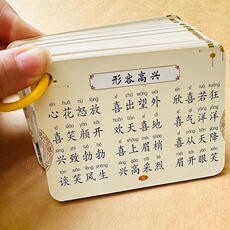 形容高兴
xīn huā nù fàng xǐ chū wàng wài xīn xǐ ruò kuáng
心花怒放 喜出望外 欣喜若狂
xǐ xiào yán kāi huān tiān xǐ dì xǐ qì yáng yáng
喜笑颜开 欢天喜地 喜气洋洋
xìng zhì bó bó xǐ shàng méi shāo xǐ cóng tiān jiàng
兴致勃勃 喜上眉梢 喜从天降
tán xiào fēng shēng xìng gāo cǎi liè méi kāi yǎn xiào
谈笑风生 兴高采烈 眉开眼笑